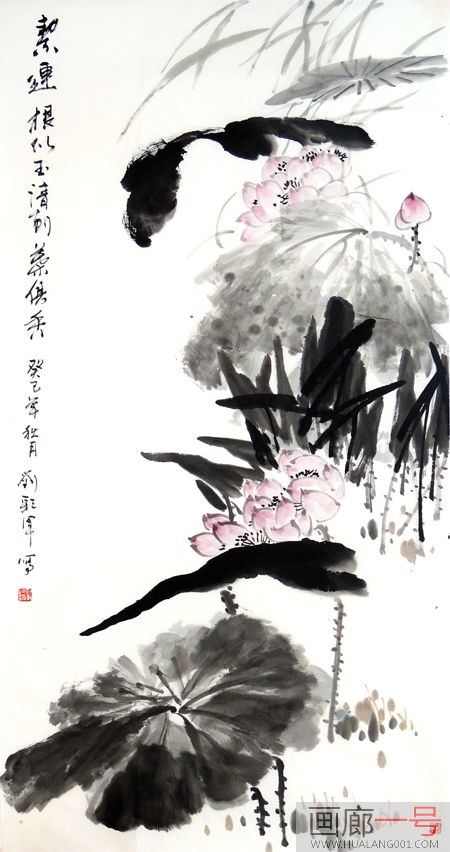 絜蓮根似玉清葉俱香 癸巳年秋月 刘軍写
画廊一号
WWW.HUALANG001.COM